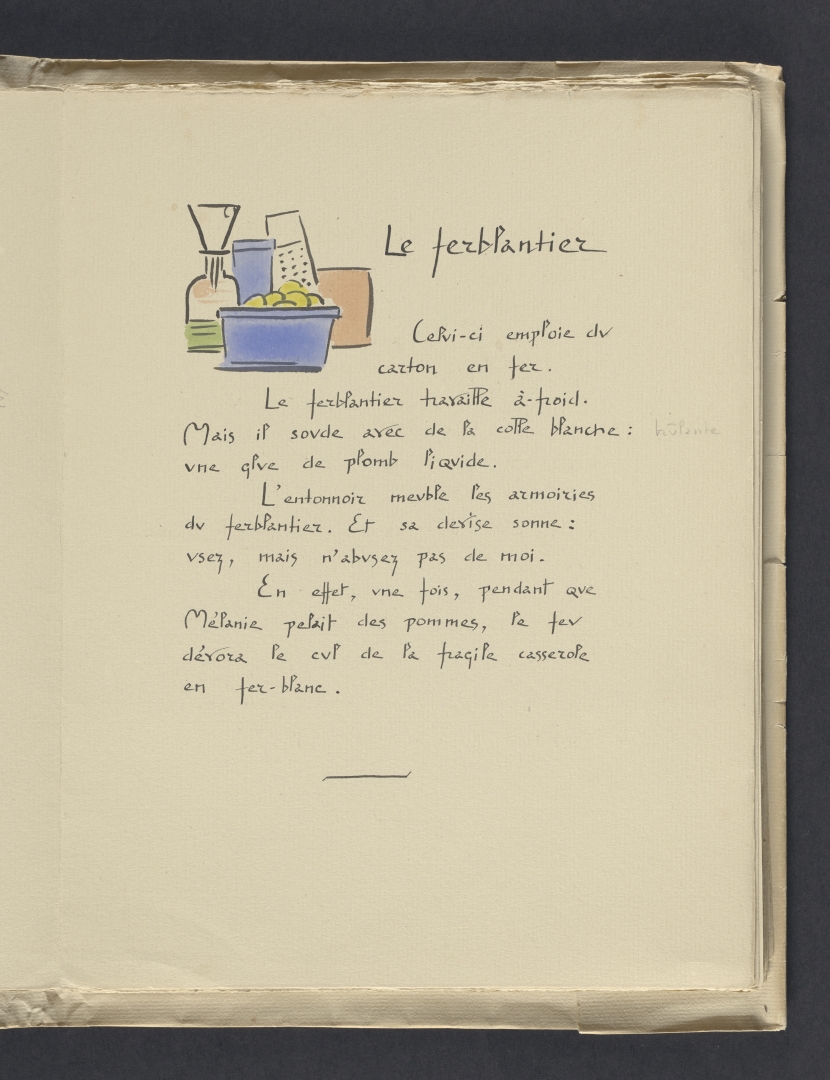 Le ferblantier
Celui-ci emploie du
carton en fer.
Le ferblantier travaille à-froid.
Mais il soude avec de la colle blanche : brûlante
une glue de plomb liquide.
L'entonnoir meuble les armoiries
du ferblantier. Et sa devise sonne :
usez, mais n'abusez pas de moi.
En effet, une fois, pendant que
Mélanie pelait des pommes, le feu
dévora le cul de la fragile casserole
en fer-blanc.